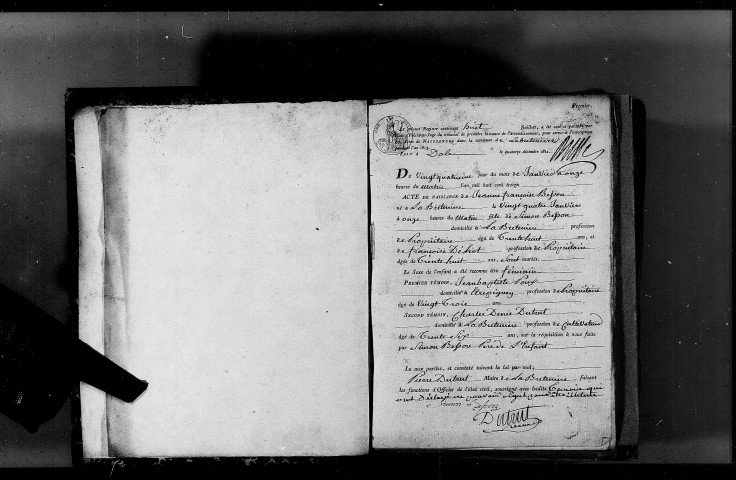 Premier.
Le présent Registre contenant huit feuillets, a été coté et
Président-Juge du tribunal de première instance de l'Arrondissement, pour servir à l'inscription
des Actes de NAISSANCES dans la commune de La Bretenière
pendant l'an 1813.
Fait à Dole le quatorze décembre 1812
Du vingtquatrieme jour du mois de Janvier à onze
heures du matin l'an mil huit cent treize
ACTE DE NAISSANCE de Jeanne françoise Besson
né à La Bretenière le vingt quatre Janvier
à onze heures du matin fille de Simon Besson
domicilié à La Bretenière profession
de Propriétaire âgé de trente huit ans, et
de françoise profession de Propriétaire
âgée de trente huit ans, étant mariés
Le Sexe de l'enfant a été reconnu être féminin
PREMIER TÉMOIN, Jeanbaptiste Poux
domicilié à Etrepigney profession de Propriétaire
âgé de Vingt Trois ans
SECOND TÉMOIN, Charles Denis Dutrut
domicilié à La Bretenière profession de Cultivateur
âgé de Trente Six ans, sur la réquisition à nous faite
par Simon Besson Pere de L'Enfant
Lu aux parties, et constaté suivant la loi par moi,
Pierre Dutrut Maire de La Bretenière faisant
les fonctions d'Officier de l'état civil, soussigné avec lesdits Témoins qui
ont déclaré ne
Besson
Dutrut